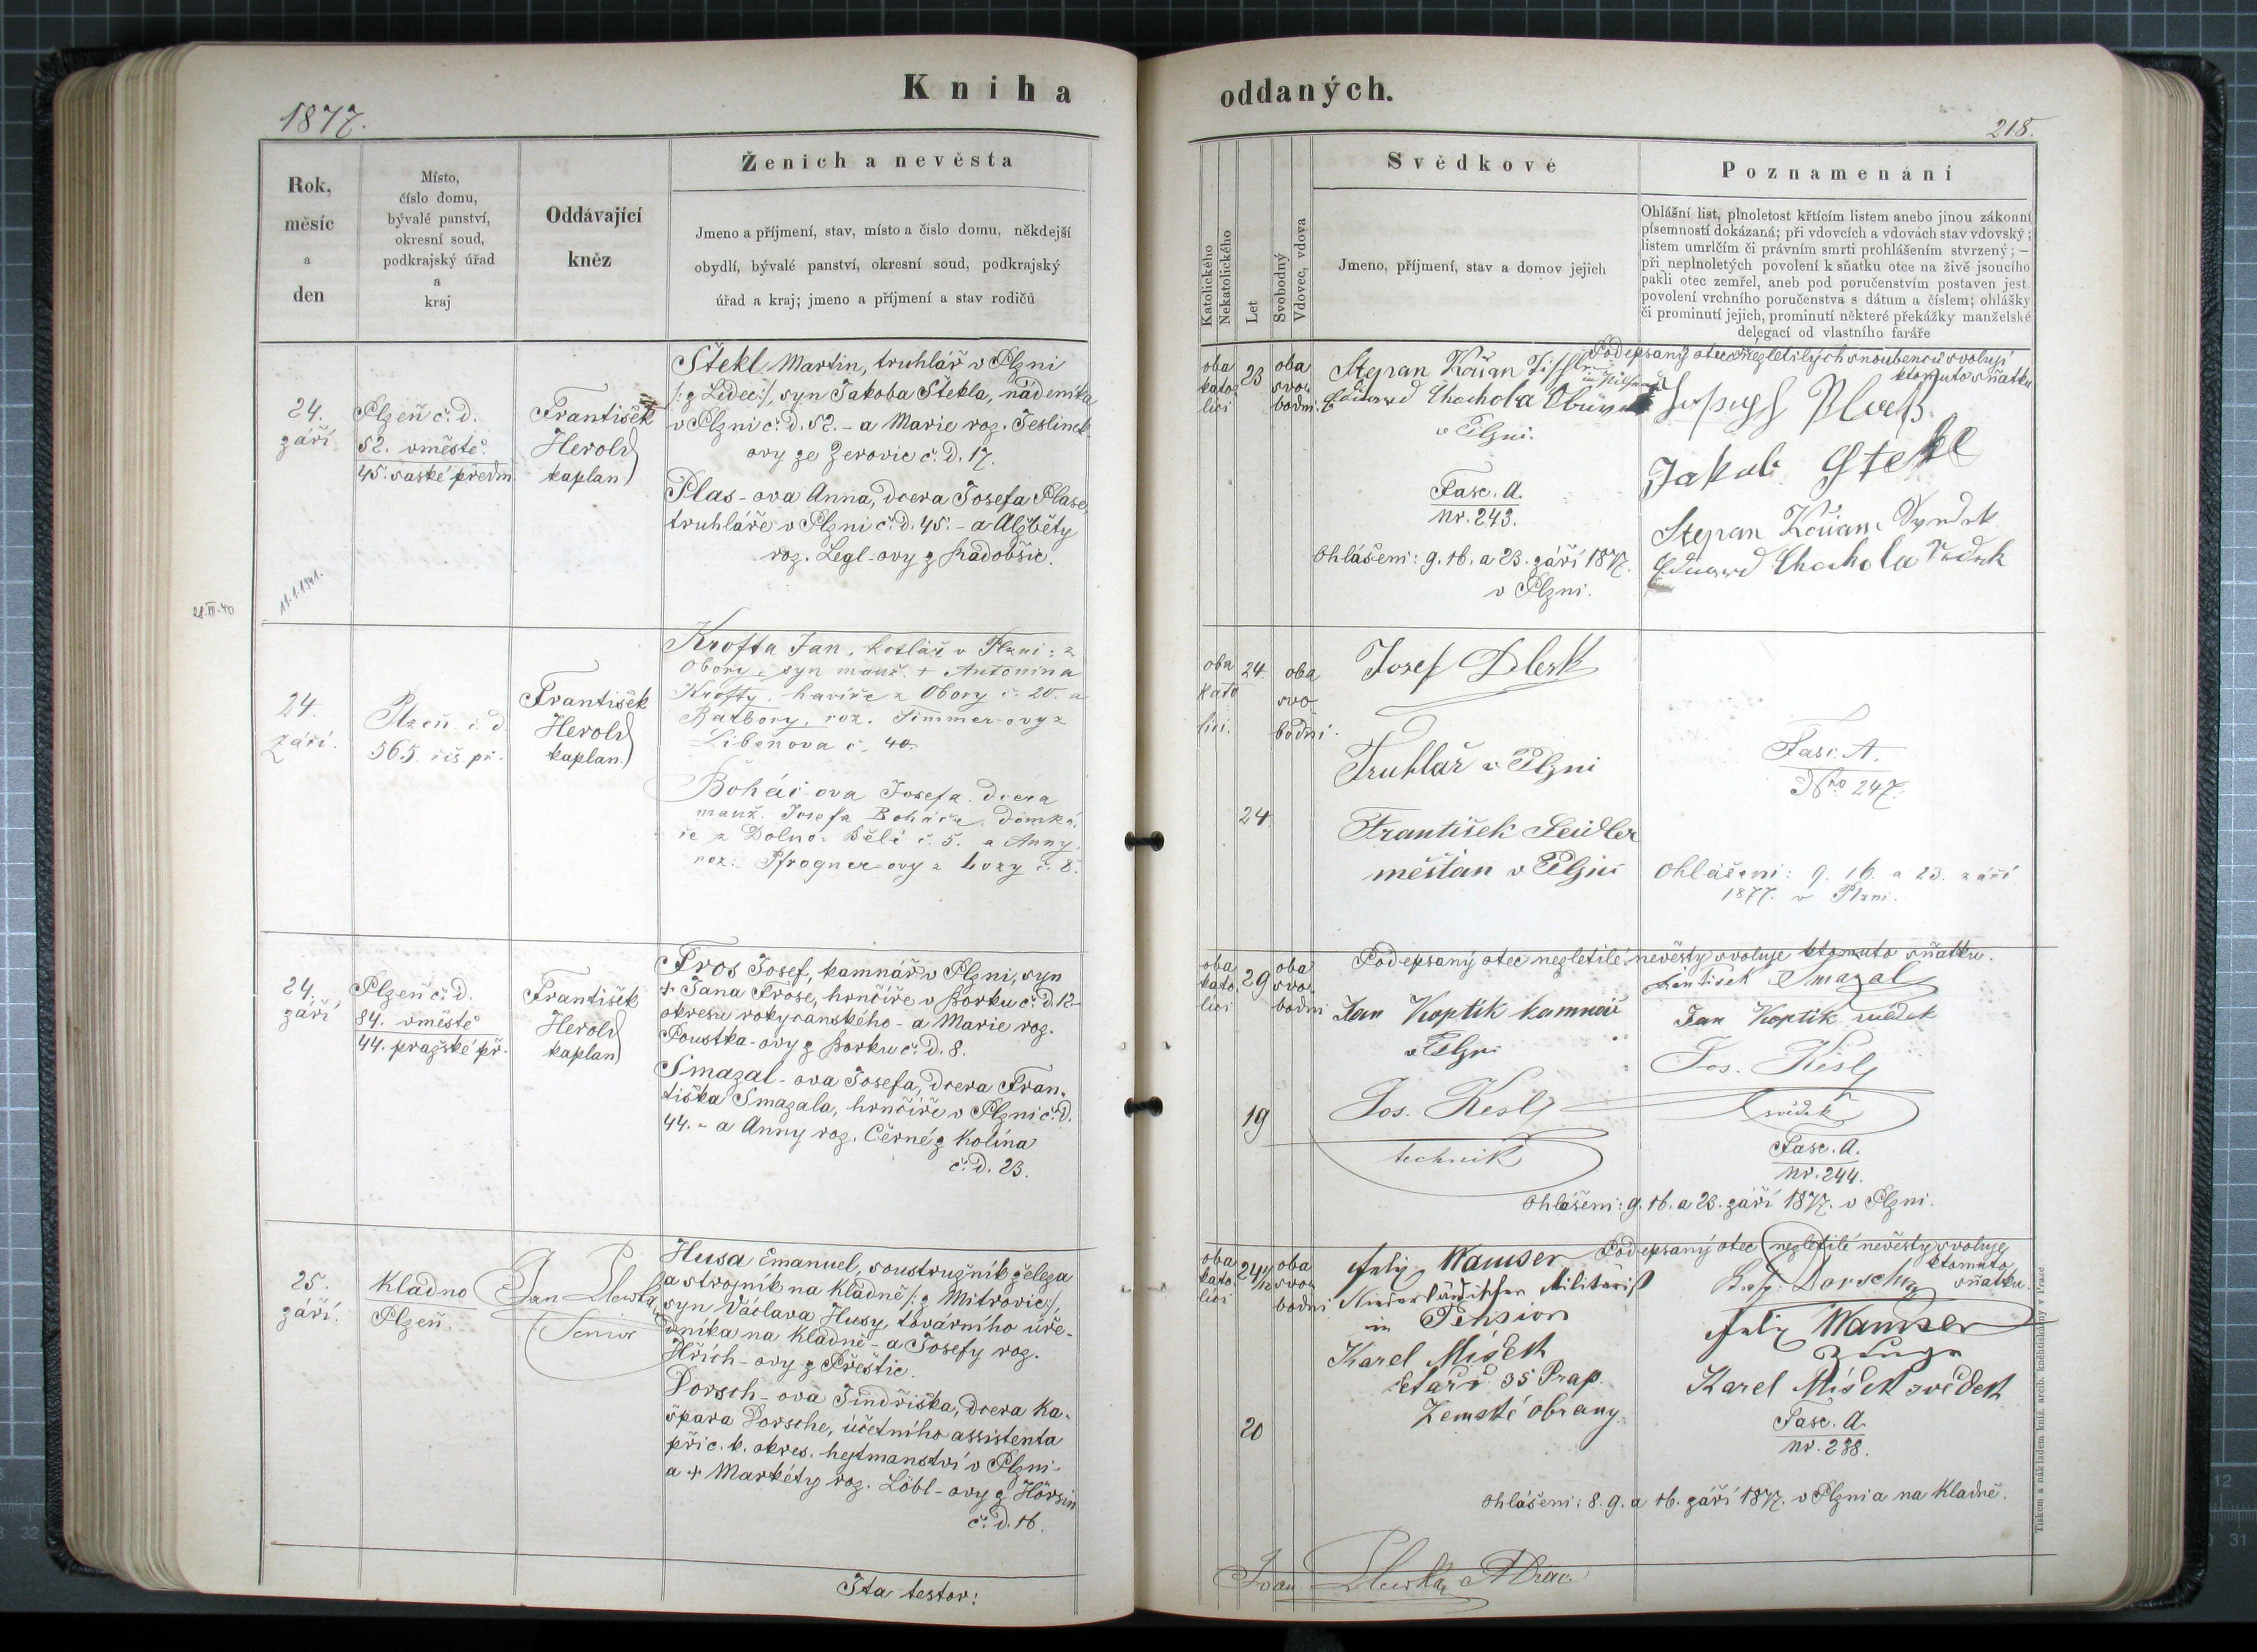 Kniha
oddaných.
1877.
218.
Rok,
měsíc
a
den
Místo,
číslo domu,
bývalé panství,
okresní soud,
podkrajský úřad
a
kraj
Oddávající
kněz
Ženich a nevěsta
Jmeno a příjmení, stav, místo a číslo domu, někdejší
obydlí, bývalé panství, okresní soud, podkrajský
úřad a kraj; jmeno a příjmení a stav rodičů
Katolického
Nekatolického
Let
Svobodný
Vdovec, vdova
Svědkové
Jmeno, příjmení, stav a domov jejich
Poznamenání
Ohlášní list, plnoletost křtícím listem anebo jinou zákonní
písemností dokázaná; při vdovcích a vdovách stav vdovský
listem umrlčím či právním smrti prohlášením stvrzený; —
při neplnoletých povolení k sňatku otce na živě jsoucího
pakli otec zemřel, aneb pod poručenstvím postaven jest
povolení vrchního poručenstva s dátum a číslem; ohlášky
či prominutí jejich, prominutí některé překážky manželské
delegací od vlastního faráře
24.
září
Plzeň č. d.
52. v městě
45. saské předm
František
Herold
kaplan
Štekl Martin, truhlář v Plzni
/: z Ledec :/, syn Jakoba Štekla, nádeníka
v Plzni č. d. 52. - a Marie roz. Ješlínek
ovy ze Žerovic č. d. 17.
Plas-ova Anna, dcera Josefa Plase,
truhláře v Plzni č. d. 45. - a Alžběty
roz. Legl-ovy z Radobšic.
11.1.1941.
21.III.40
oba
kato
líci
23
oba
svo
bodni
Podepsaný otcu nezletilých snoubenců svolují
k tomuto sňatku
Stepan Kořian
Eduard Chochola
v Plzni.
Fasc. A.
nr. 243.
Ohlášeni: 9. 16. a 23. září 1877.
v Plzni.
Jakub Stekl
Stepan Kořian
Eduard Chochola
24.
září.
Plzeň č. d
565. říš. př.
František
Herold
kaplan
Krofta Jan, kotlář v Plzni: z
Obory, syn manž. + Antonina
Krofty, havíře z Obory č. 20. a
Barbory, roz. Timmer-ovy z
Libeňova č. 40.
Boháč-ova Josefa, dcera
manž. Josefa Boháče, domká
ře z Dolno. Bělé č. 5. a Anny,
roz. Pfrogner-ovy z Lozy č. 8.
oba
kato
líci.
24.
oba
svo
bodni.
24
Josef
Truhlař v Plzni
František Seidler
měštan v Plzni
Fasc. A.
Nro 247.
Ohlášeni: 9. 16. a 23. září
1877. v Plzni.
24.
září
Plzeň č. d.
84. v městě
44. pražské př.
František
Herold
kaplan
Fros Josef, kamnář v Plzni, syn
+ Jana Frose, hrnčíře v Borku č. d. 12
okresu rokycanského - a Marie roz.
Poustka-ovy z Borku č. d. 8.
Smazal-ova Josefa, dcera Fran-
tiška Smazala, hrnčíře v Plzni č. d.
44. - a Anny roz. Černé z Kolína
č. d. 23.
oba
kato
líci
29
oba
svo
bodni
19
Podepsaný otec nezletilé nevěsty svoluje k tomuto sňatku.
František Smazal
Jan Koptik kamnář
v Plzni
Jan Koptik svědek
Jos. Kesly
technik
Jos. Kesly
svědek
Fasc. A.
nr. 244.
Ohlášeni: 9. 16. a 23. září 1877. v Plzni.
25.
září.
Kladno
Plzeň.
Jan
Senior
Husa Emanuel, soustružník železa
a strojník na Kladně /: z Mitrovic :/,
syn Václava Husy, továrního úře-
dníka na Kladně - a Josefy roz.
Hřích-ovy z Přeštic.
Dorsch-ova Jindřiška, dcera Ka-
špara Dorsche, účetního assistenta
při c. k. okres. hejtmanství v Plzni-
a + Markéty roz. Löbl-ovy z Hörsin
č. d. 16.
oba
kato
líci
24 1/12
oba
svo
bodni
20
Podepsaný otec nezletilé nevěsty svoluje
k tomuto
sňatku.
Wamser
Niederländischer Militärist
in Pension
Dorsch
Wamser
Zeuge
Karel Míšek
35 Prap.
Zemské obrany
Karel Míšek svědek
Fasc. A.
nr. 238.
Ohlášeni: 8. 9. a 16. září 1877. v Plzni a na Kladně.
Ita testor:
Tiskem a nákladem kníž. arcib. knihtiskárny v Praze